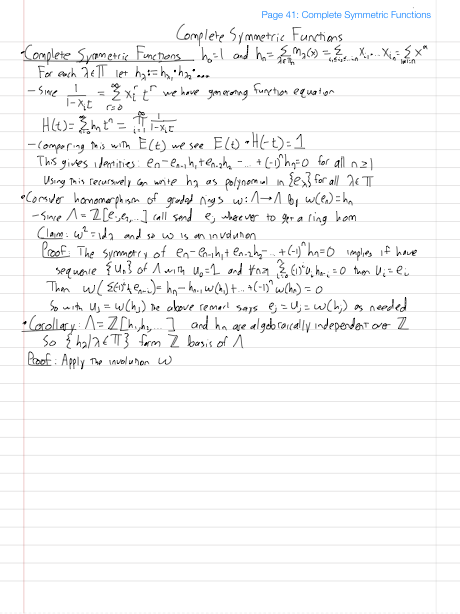 Page 41: Complete Symmetric Functions
Complete Symmetric Functions
•Complete Symmetric Functions h₀=1 and hₙ = Σ_{λ∈πₙ} m_λ(x) = Σ_{i₁≤i₂≤...≤iₙ} x_{i₁}...x_{iₙ} = Σ x^α
For each λ∈Π let h_λ := h_{λ₁}·h_{λ₂}·...
-Since 1/(1-xᵢt) = Σ_{r=0}^∞ xᵢʳ tʳ we have generating function equation
H(t) = Σ_{n=0}^∞ hₙtⁿ = Π_{i=1}^∞ 1/(1-xᵢt)
-Comparing this with E(t) we see E(t)·H(-t)=1
This gives identities: eₙ-eₙ₋₁h₁+eₙ₋₂h₂-...+(-1)ⁿhₙ=0 for all n≥1
Using this recursively can write h_λ as polynomial in {e_λ} for all λ∈Π
•Consider homomorphism of graded rings ω:Λ→Λ by ω(eₙ)=hₙ
-Since Λ=ℤ[e₁,e₂,...] can send eⱼ wherever to get a ring hom
Claim: ω²=id_Λ and so ω is an involution
Proof: The symmetry of eₙ-eₙ₋₁h₁+eₙ₋₂h₂-...+(-1)ⁿhₙ=0 implies if have
sequence {Uₙ} of Λ with U₀=1 and ∀n≥1 Σ(-1)ⁱUᵢhₙ₋ᵢ=0 then Uᵢ=eᵢ
Then ω(Σ(-1)ⁱhᵢeₙ₋ᵢ)=hₙ-hₙ₋₁ω(h₁)+...+(-1)ⁿω(hₙ)=0
So with Uⱼ=ω(hⱼ) the above remark says eⱼ=Uⱼ=ω(hⱼ) as needed
•Corollary: Λ=ℤ[h₁,h₂,...] and hₙ are algebraically independent over ℤ
So {h_λ|λ∈Π} form ℤ basis of Λ
Proof: Apply the involution ω